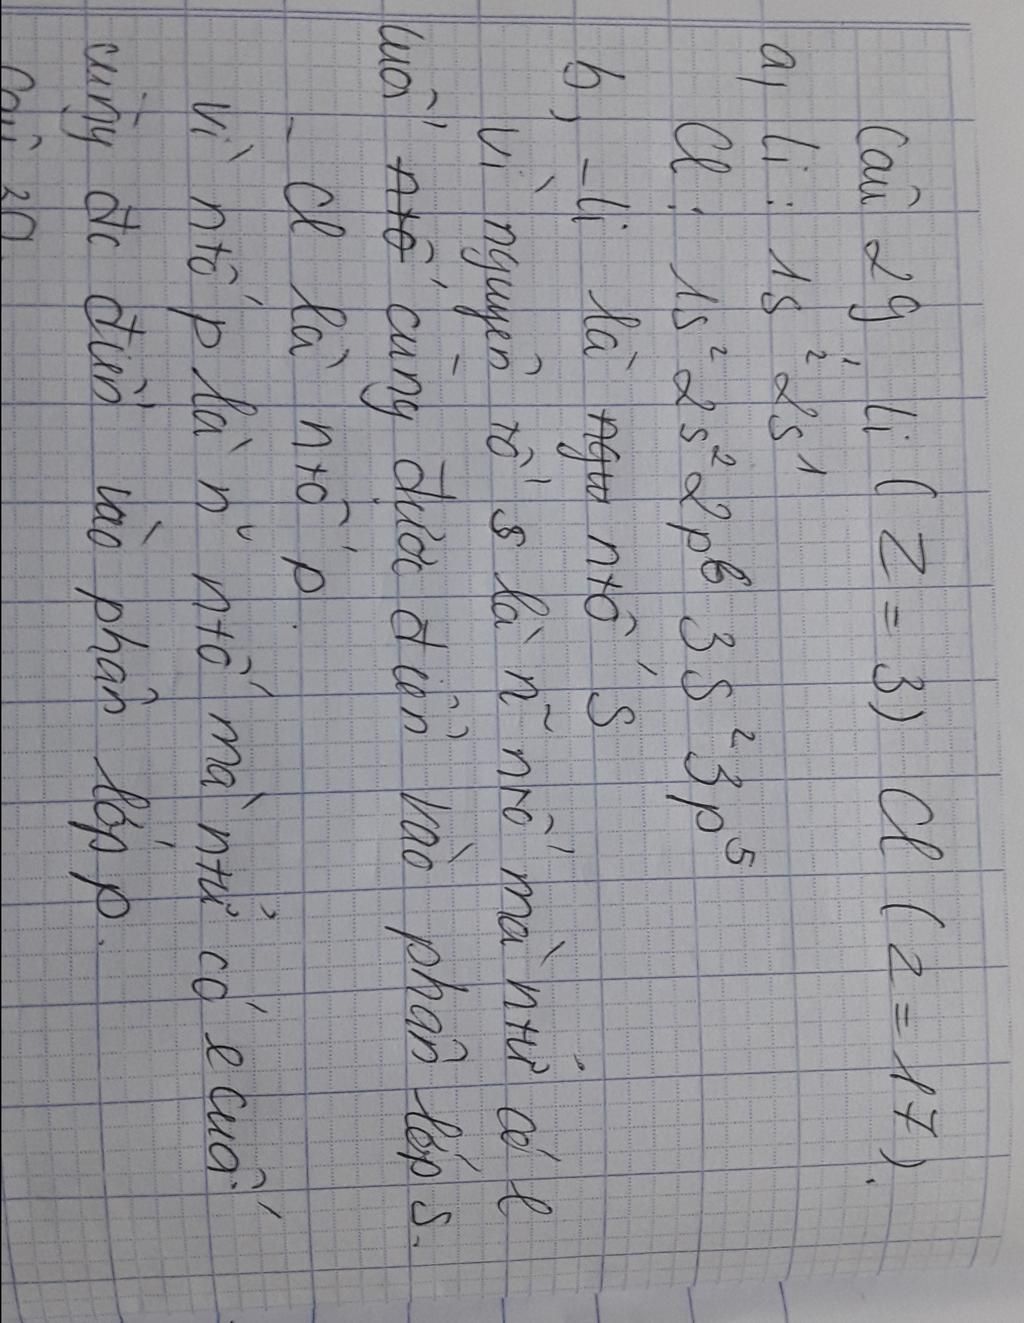 Câu 29: Li ( Z = 3) Cl ( Z = 17).
a, Li : 1s² 2s¹
Cl : 1s² 2s² 2p⁶ 3s² 3p⁵
b, - Li là ngu ntố s
Vì nguyên tố s là n~ ntố mà ntử có e
cuối ntố cùng được điền vào phân lớp s.
- Cl là ntố p.
Vì ntố p là n~ ntố mà ntử có e cuối
cùng đc điền vào phân lớp p.
Câu 30